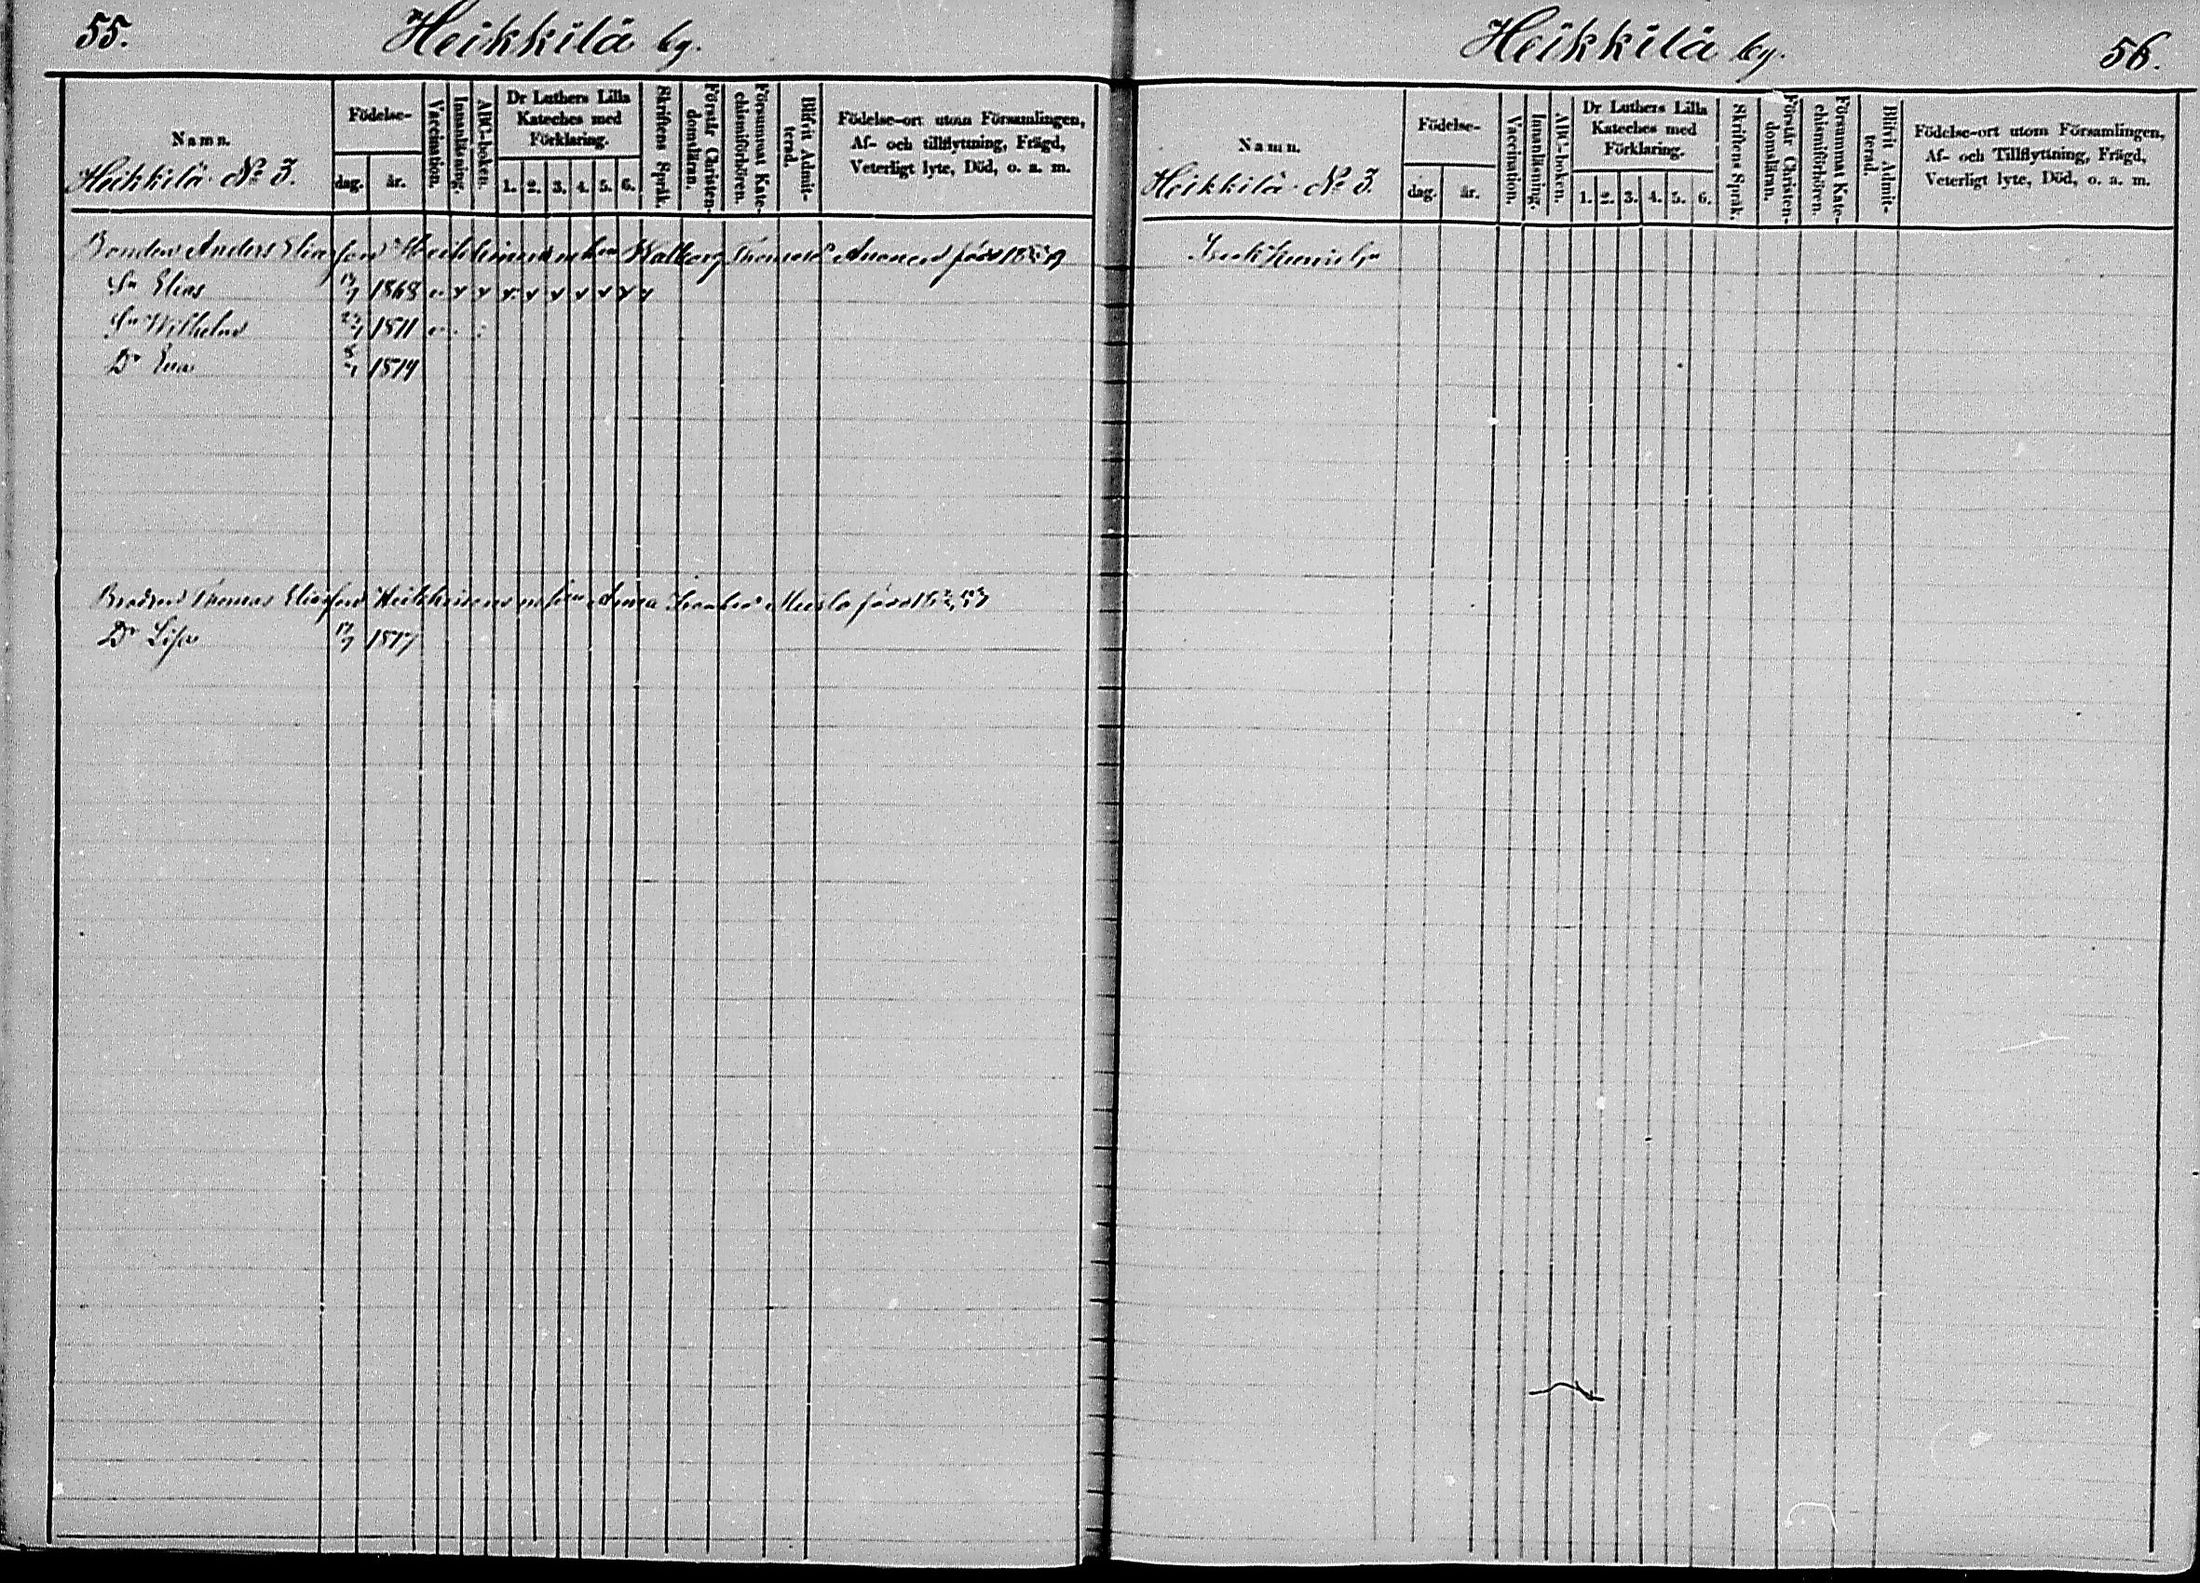 55.
Heikkilä by.
Namn.
Heikkilä No 3.
Födelse-
dag.
år.
Vaccination.
Innanläsning.
ABC-boken.
Dr Luthers Lilla
Kateches med
Förklaring.
1. 2. 3. 4. 5. 6.
Skriftens Språk.
Förstår Christen-
domsläran.
Försummat Kate-
chismiförhören.
Blifvit Admit-
terad.
Födelse-ort utom Församlingen,
Af- och tillflyttning, Frägd,
Veterligt lyte, Död, o. a. m.
Bonden Anders Eliasson Heikkinen Walborg född
Sn Elias 1868
Sn Wilhelm 1871
Dr Eva 1874
Brodren Thomas Eliasson Heikkinen Anna född
Dr Lisa 1877
Heikkilä by.
56.
Namn.
Heikkilä No 3.
Födelse-
dag.
år.
Vaccination.
Innanläsning.
ABC-boken.
Dr Luthers Lilla
Kateches med
Förklaring.
1. 2. 3. 4. 5. 6.
Skriftens Språk.
Förstår Christen-
domsläran.
Försummat Kate-
chismiförhören.
Blifvit Admit-
terad.
Födelse-ort utom Församlingen,
Af- och Tillflyttning, Frägd,
Veterligt lyte, Död, o. a. m.